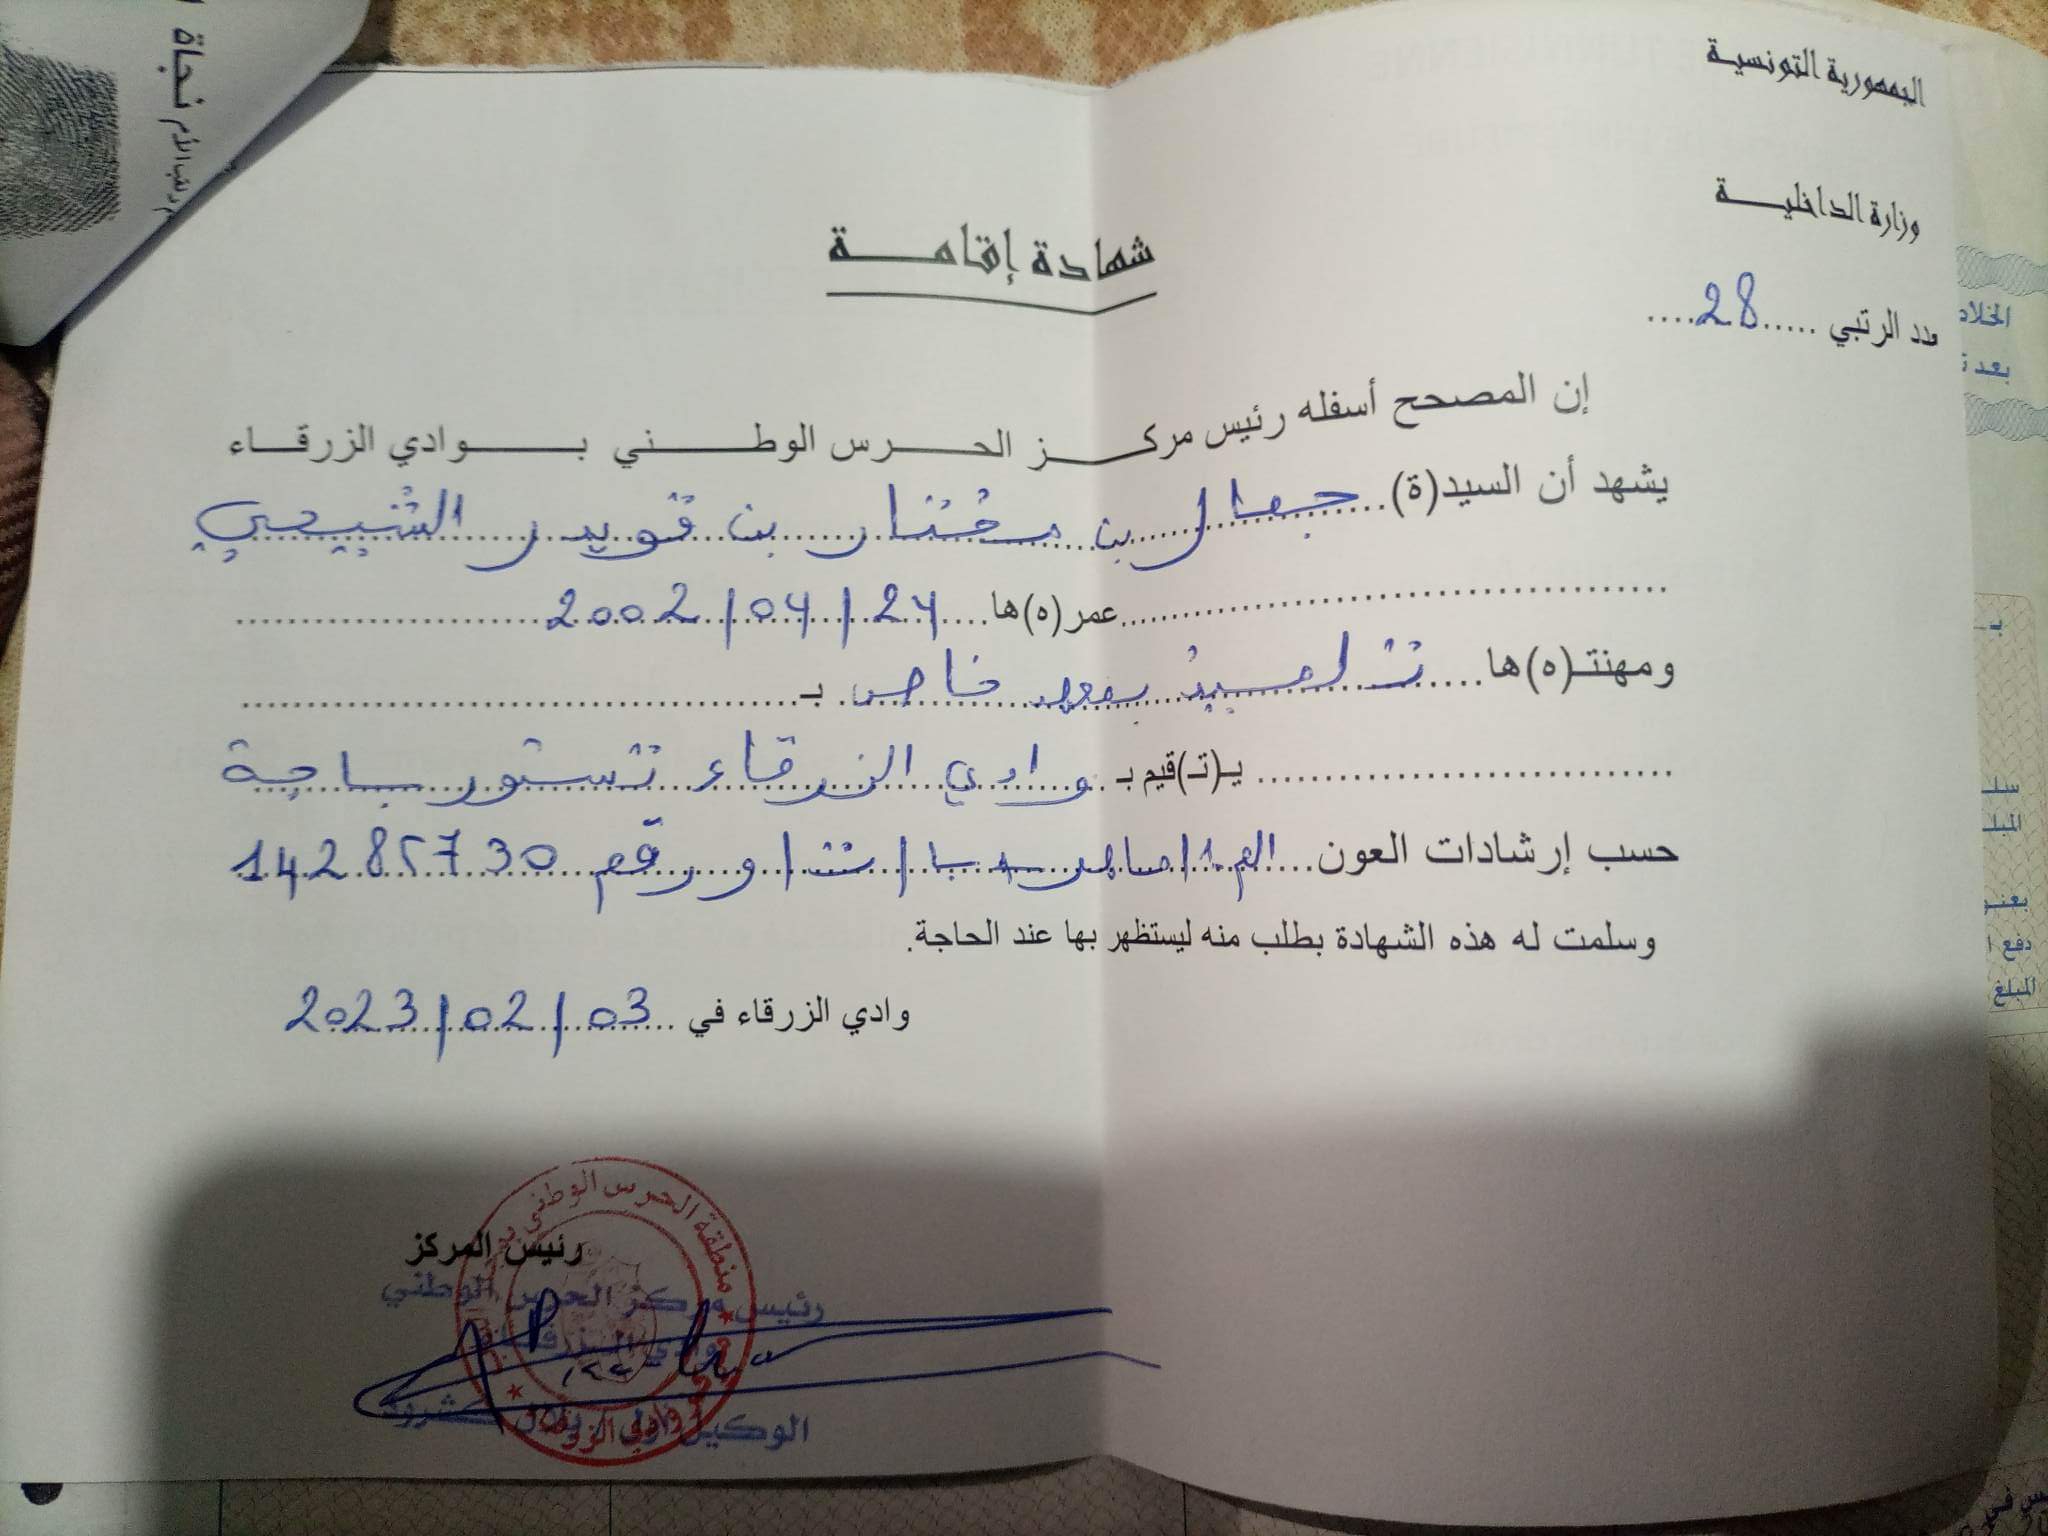 الجمهورية التونسية
وزارة الداخلية
عدد الرتبي .....28....
شهادة إقامة
إن المصحح أسفله رئيس مركز الحرس الوطني بوادي الزرقاء
يشهد أن السيد(ة)...جمال بن مختار بن قويدر الشيحي
عمر(ه)ها....24/04/2002
ومهنتـ(ه)ها....تلميذ بمعهد خاص بـ
يـ(تـ)قيم بـ..وادي الزرقاء تستور باجة
حسب إرشادات العون... با/ت/و رقم 14285730
وسلمت له هذه الشهادة بطلب منه ليستظهر بها عند الحاجة.
وادي الزرقاء في ...03/02/2023
رئيس المركز
رئيس مركز الحرس الوطني
وادي الزرقاء
الوكيل
منطقة الحرس الوطني
نجاة
لقب الأم
الخلا
بعد
دفع
المبلغ